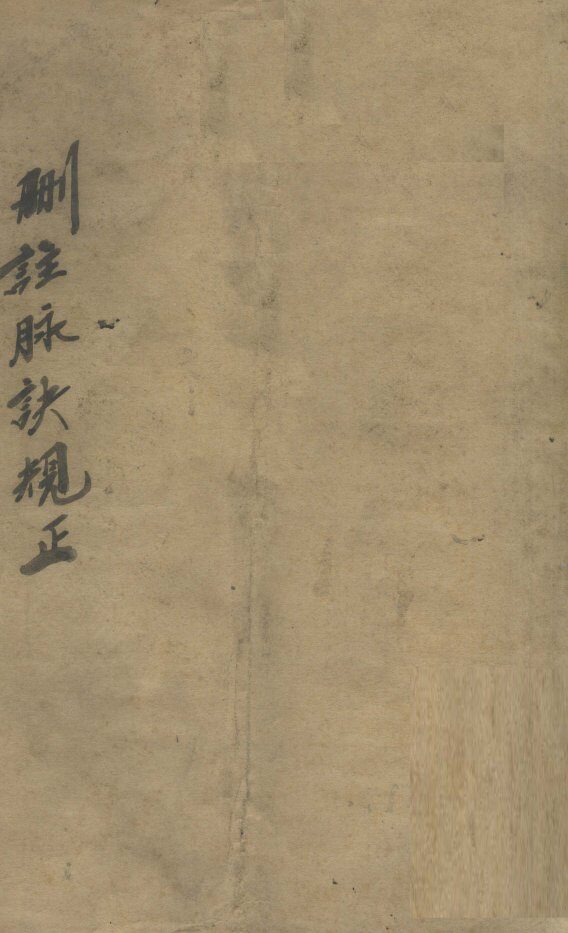 刪註脉訣規正